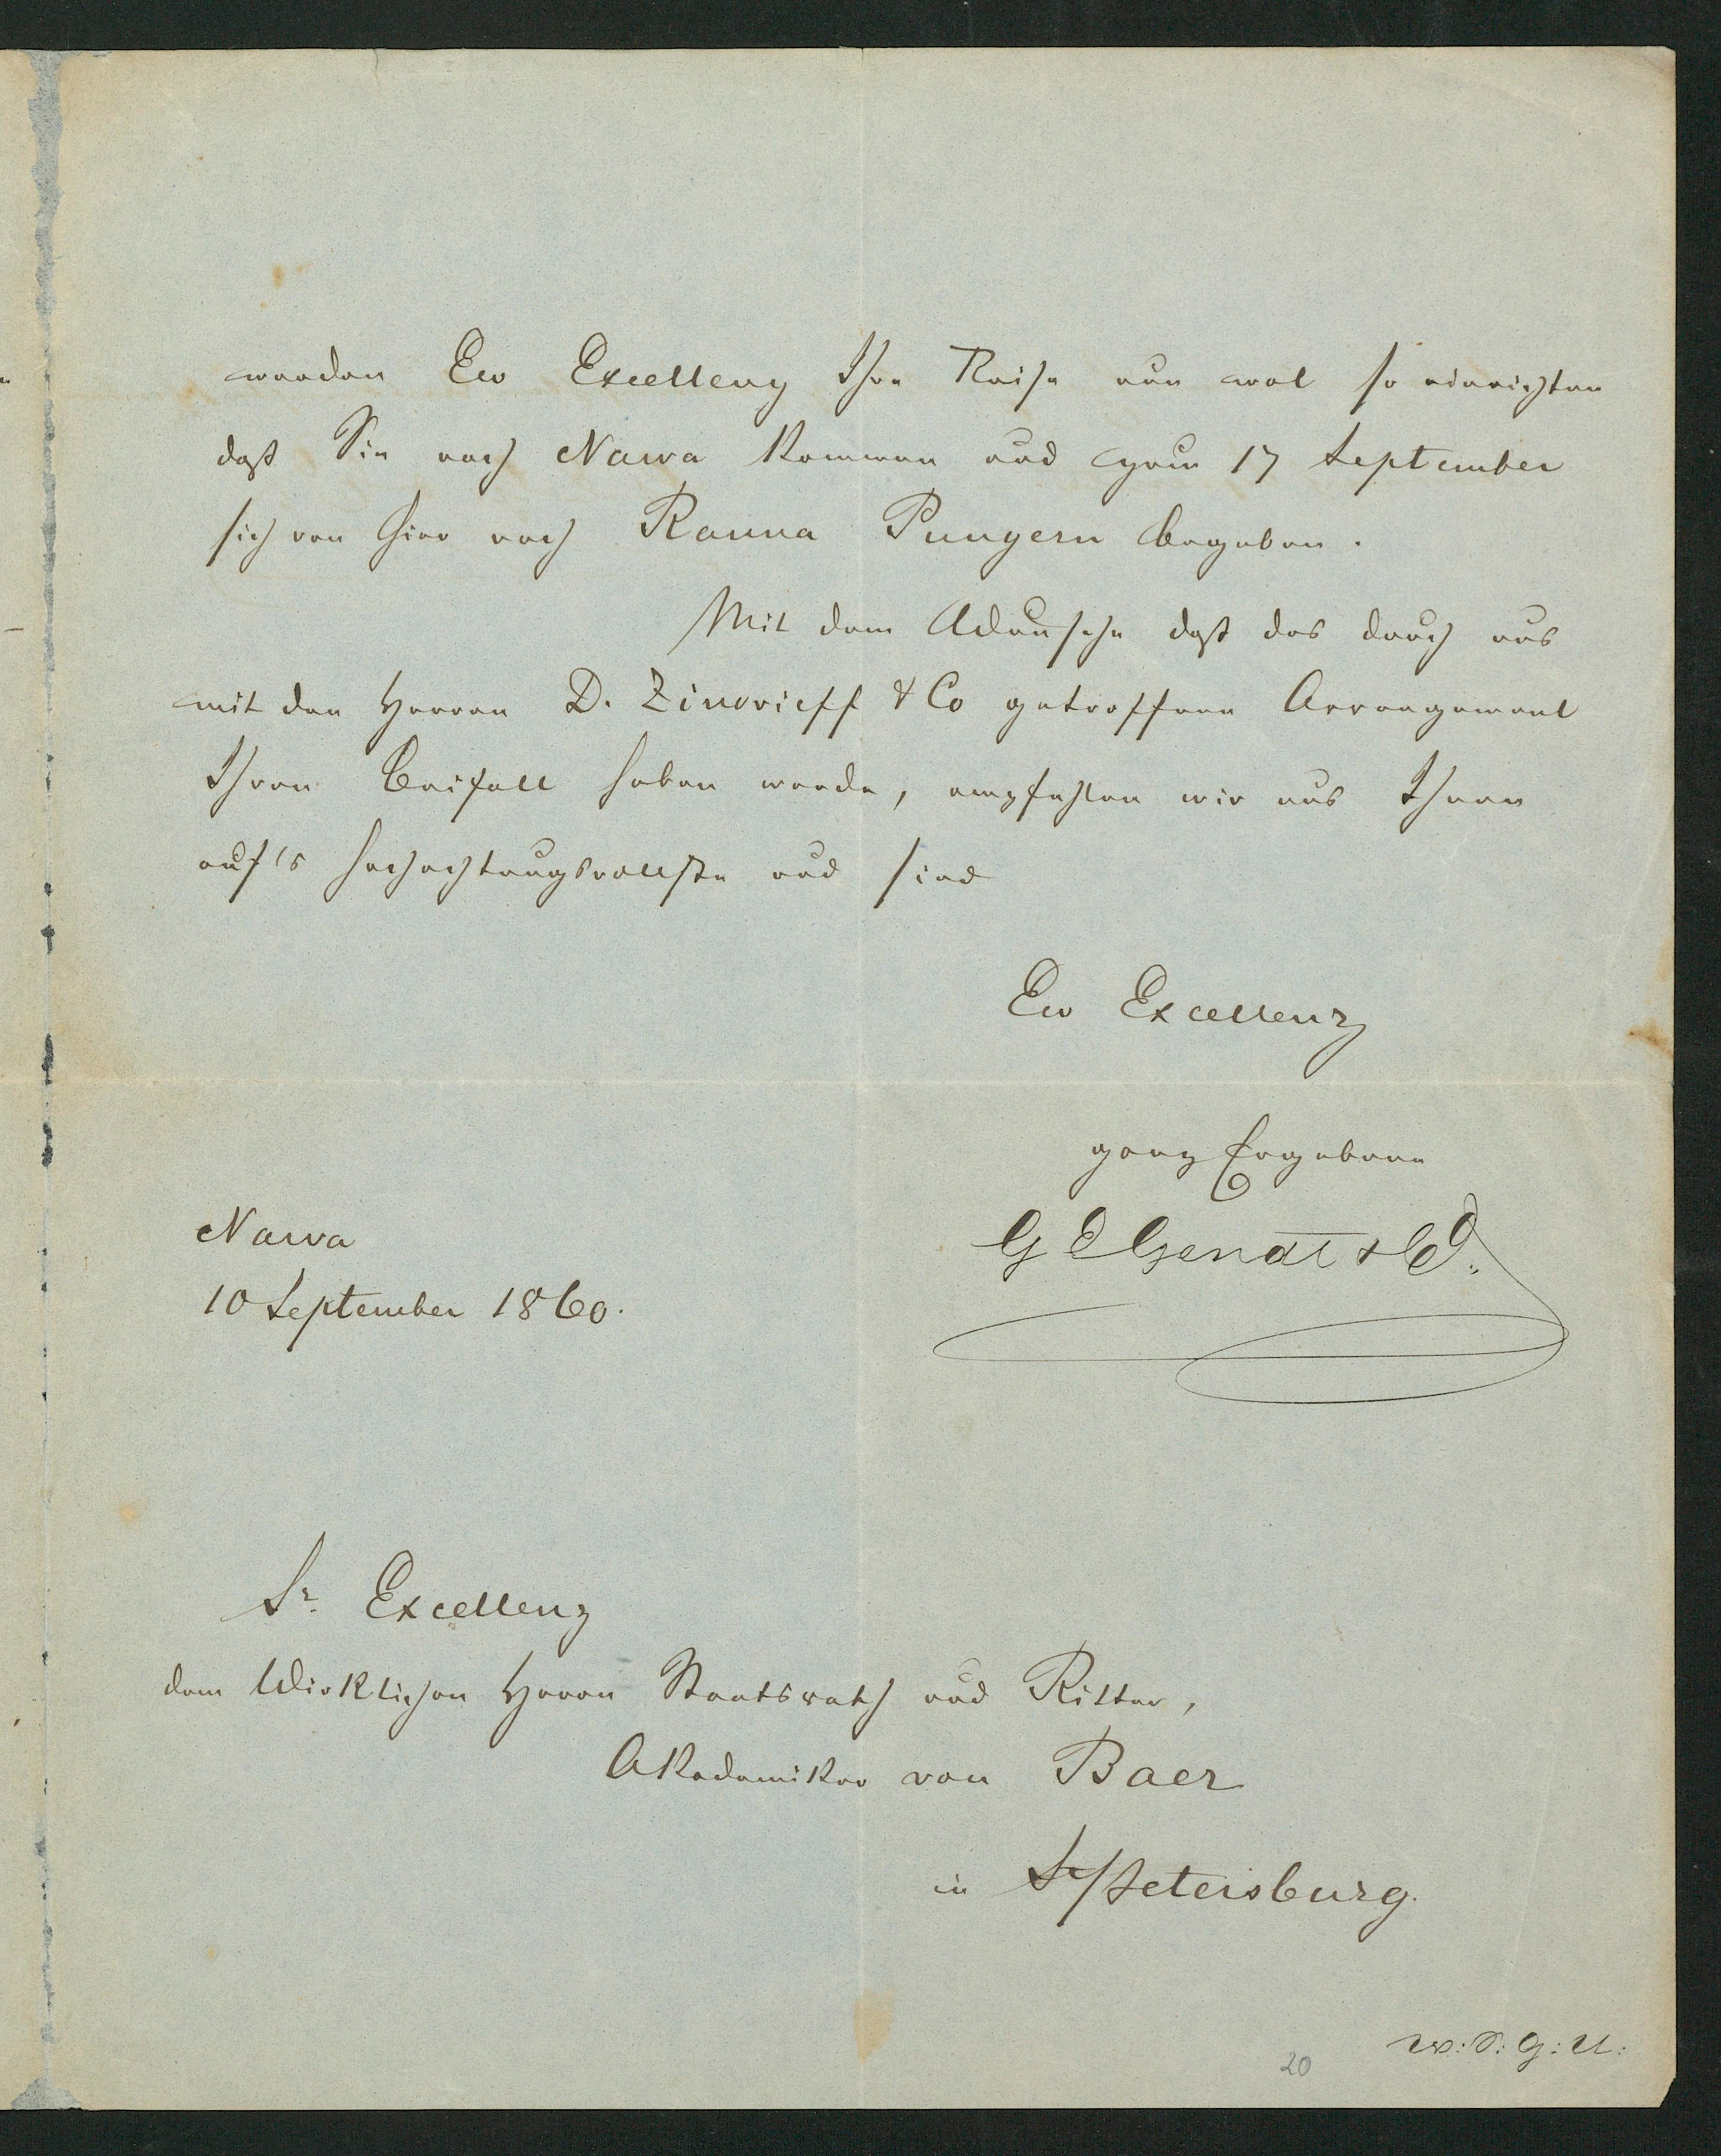 werden Ew Excellenz Ihre Reise nun wol so einrichten
daß Sie nach Narva kommen und zum 17 September
sich von hier nach Ranna Pungern begeben.
Mit dem Wunsche daß das durch uns
mit den Herren D. Zinovieff & Co getroffene Arrangement
Ihren Beifall haben werde, empfehlen wir uns Ihnen
auf's hochachtungsvollste und sind
Ew Excellenz
ganz Ergebene
Narva
10 September 1860.
Sr. Excellenz
dem Wirklichen Herrn Staatsrath und Ritter,
Akademiker von Baer
in St Petersburg.
20
W: S: G: U: